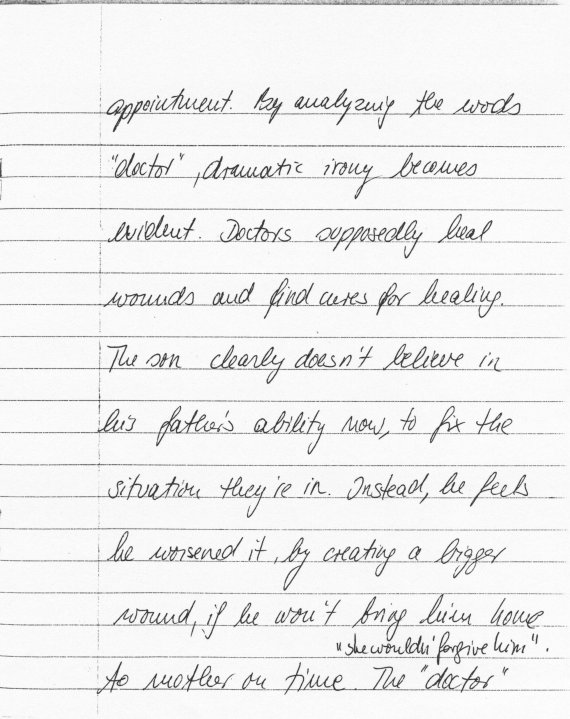 appointment. By analyzing the words
"doctor", dramatic irony becomes
evident. Doctors supposedly heal
wounds and find cures for healing.
The son clearly doesn't believe in
his father's ability now, to fix the
situation they're in. Instead, he feels
he worsened it, by creating a bigger
wound, if he won't bring him home
"she wouldn' forgive him".
to mother on time. The "doctor"